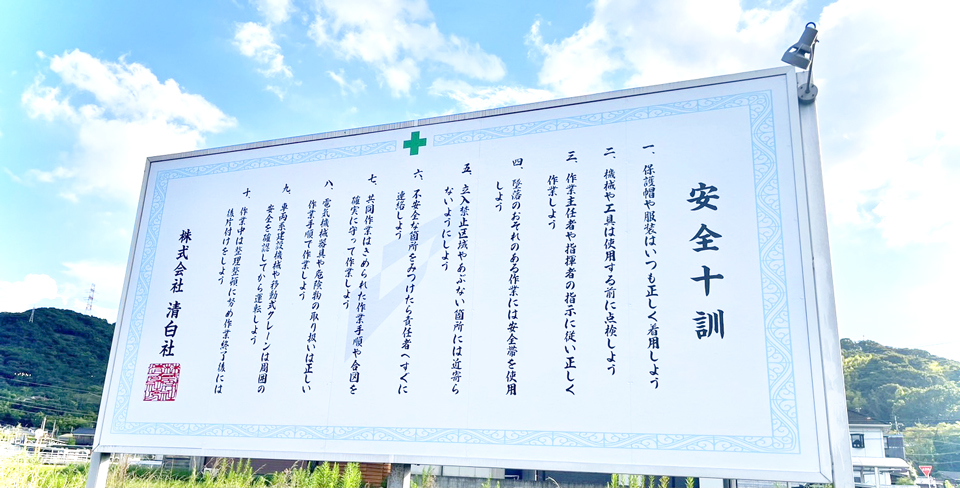 安全十訓
一、保護帽や服装はいつも正しく着用しよう
二、機械や工具は使用する前に点検しよう
三、作業主任者や指揮者の指示に従い正しく
作業しよう
四、墜落のおそれのある作業には安全帯を使用
しよう
五、立入禁止区域やあぶない箇所には近寄ら
ないようにしよう
六、不安全な箇所をみつけたら責任者へすぐに
連絡しよう
七、共同作業はきめられた作業手順や合図を
確実に守って作業しよう
八、電気機械器具や危険物の取り扱いは正しい
作業手順で作業しよう
九、車両系建設機械や移動式クレーンは周囲の
安全を確認してから運転しよう
十、作業中は整理整頓に努め作業終了後には
後片付けをしよう
株式会社 清白社